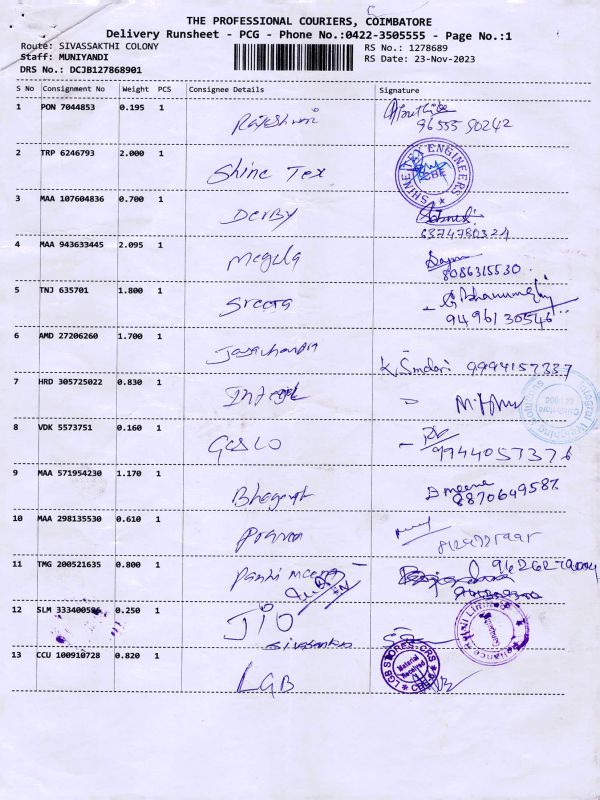 THE PROFESSIONAL COURIERS, COIMBATORE
Delivery Runsheet - PCG - Phone No.:0422-3505555 - Page No.:1
Route: SIVASSAKTHI COLONY
RS No.: 1278689
Staff: MUNIYANDI
RS Date: 23-Nov-2023
DRS No.: DCJB127868901
S No Consignment No Weight PCS Consignee Details Signature
1 PON 7044853 0.195 1
Rajeshwari
96555 50242
2 TRP 6246793 2.000 1
Shine Tex
SHINE TEX ENGINEERS
CBE
3 MAA 107604836 0.700 1
Derby
6374780321
4 MAA 943633445 2.095 1
Megala
8086315530
5 TNJ 635701 1.800 1
Sreeja
G. Bhanumathy
9496130546
6 AMD 27206260 1.700 1
Jayachandra
K. Sundari 9994157337
7 HRD 305725022 0.830 1
Integral
8 VDK 5573751 0.160 1
9944057376
9 MAA 571954230 1.170 1
Bhagavat
D meena
8870649587
10 MAA 298135530 0.610 1
Prama
11 TMG 200521635 0.800 1
Meena
12 SLM 0.250 1
JIO
Sivasankar
13 CCU 100910728 0.820 1
LGB
LGB STORES-CRS
Material
Received